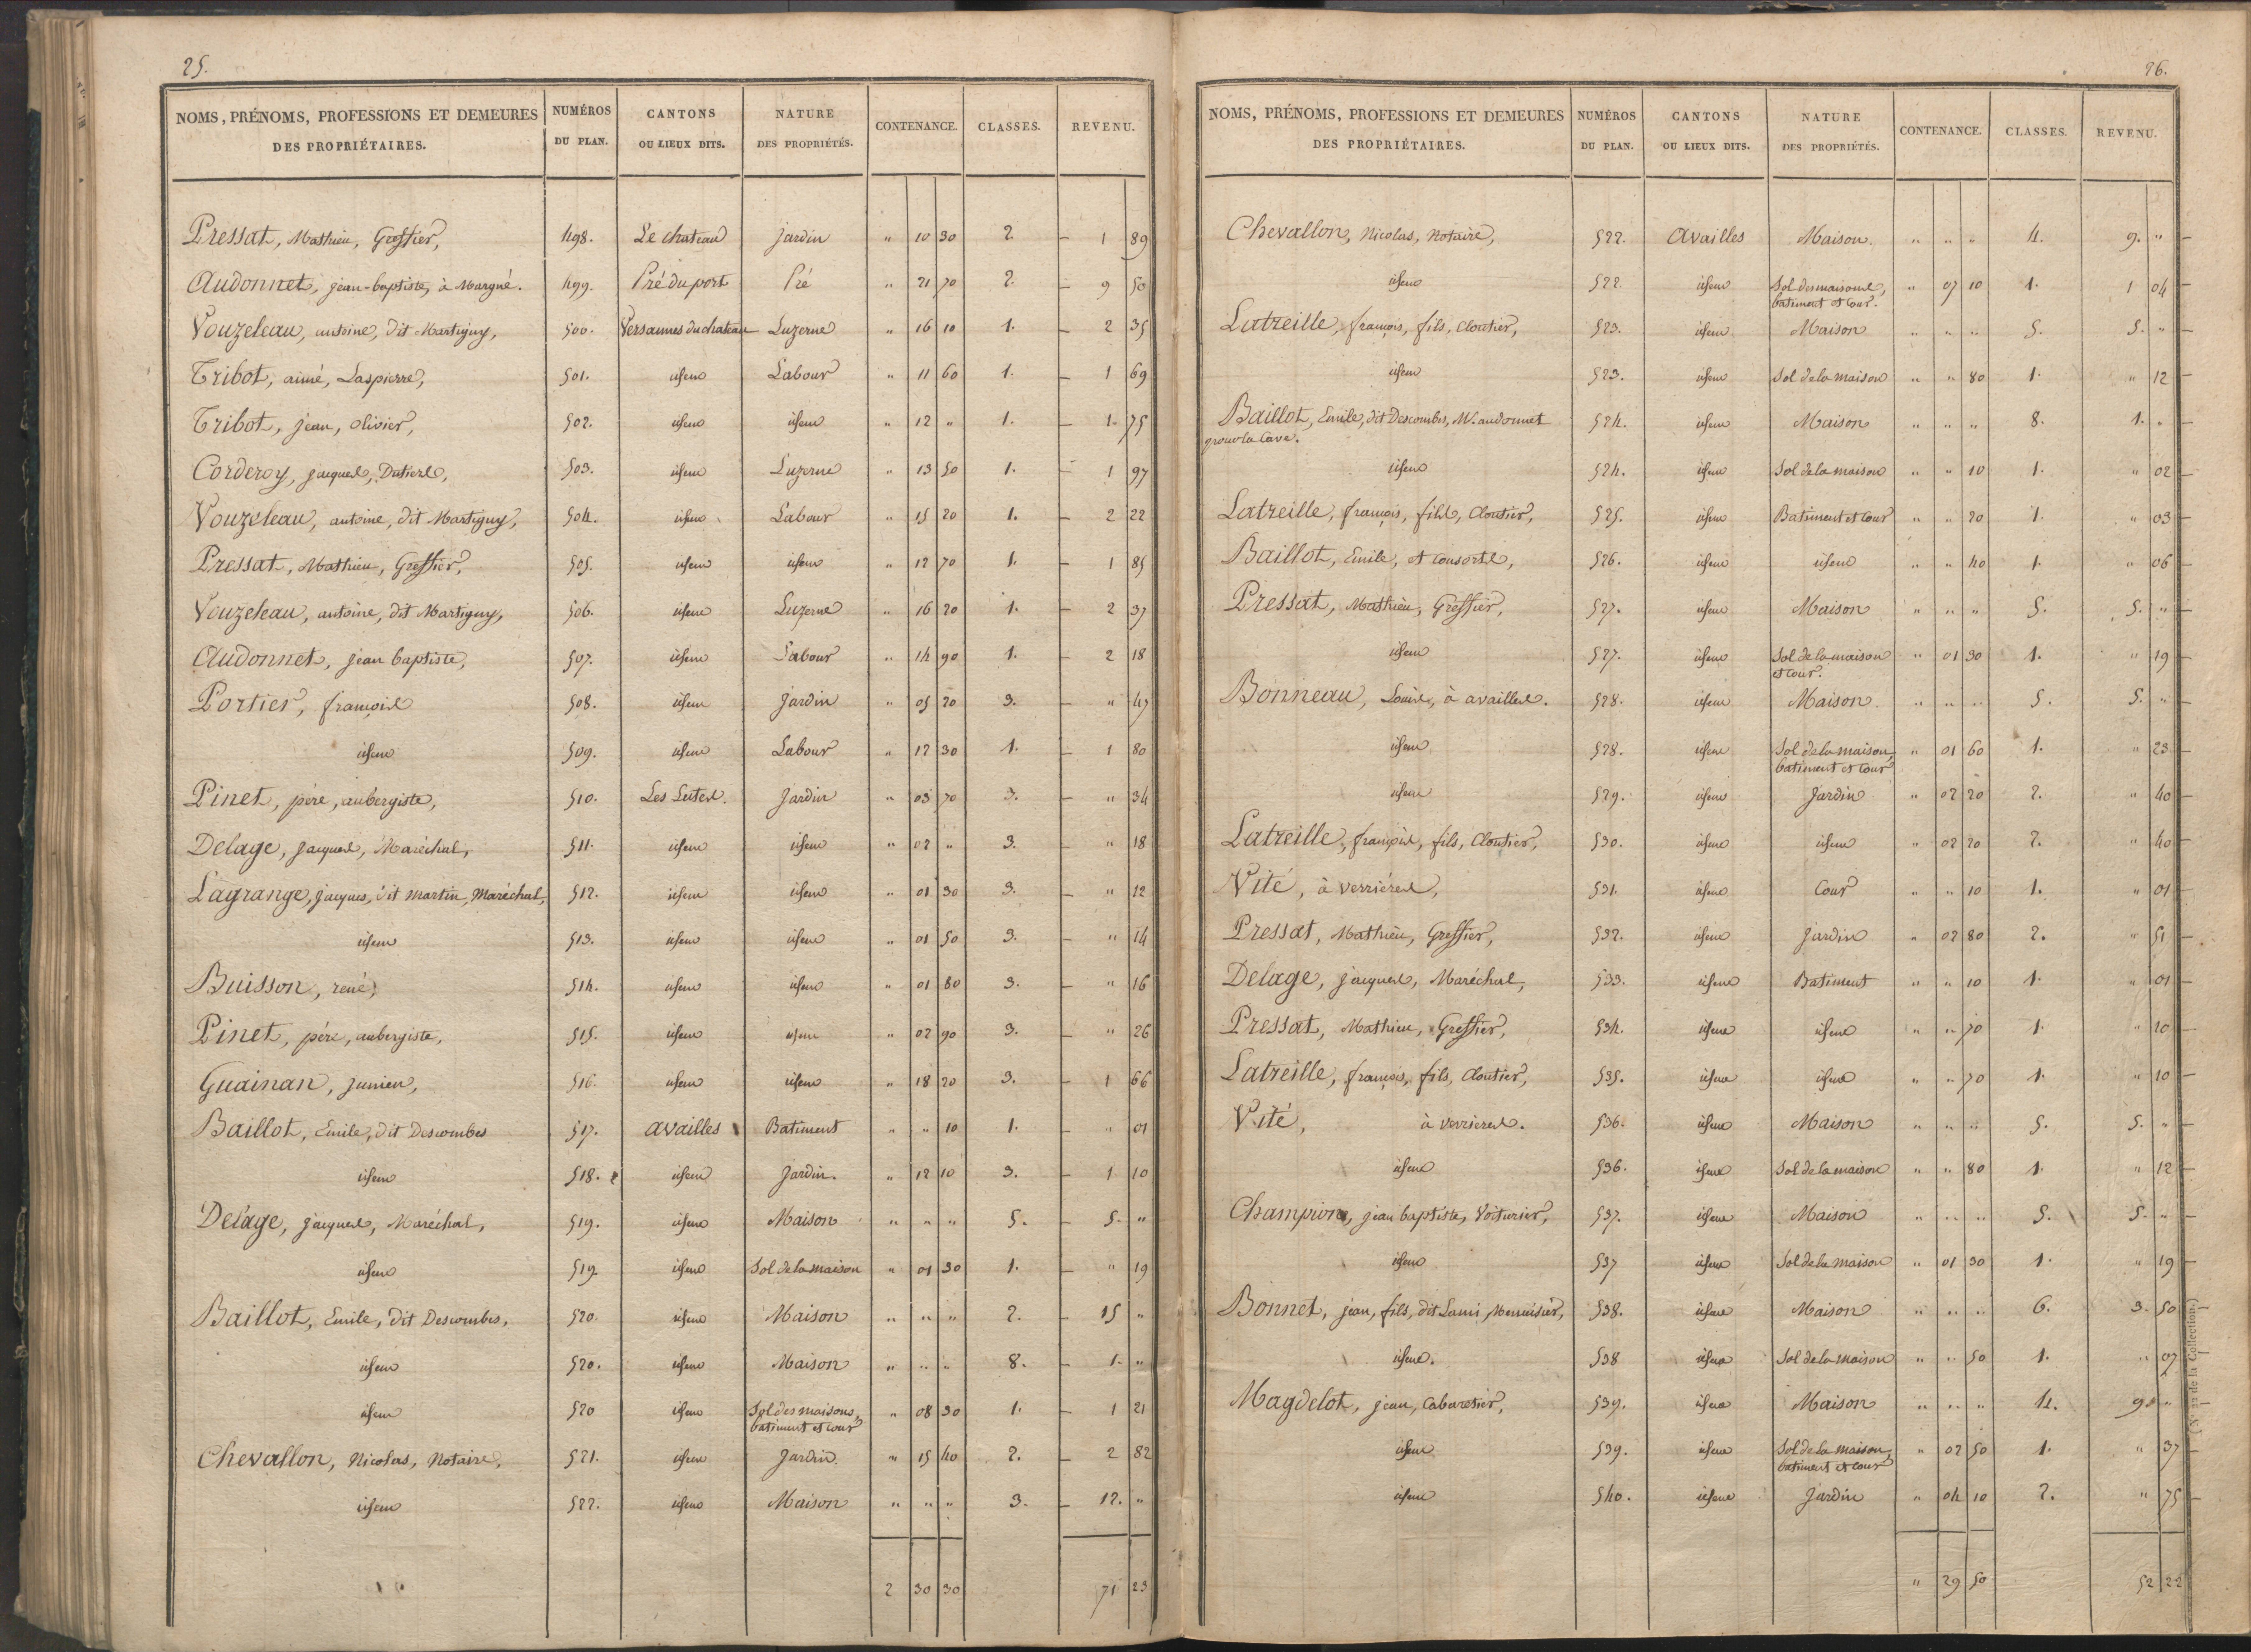 25.
NOMS, PRÉNOMS, PROFESSIONS ET DEMEURES DES PROPRIÉTAIRES. NUMÉROS DU PLAN. CANTONS OU LIEUX DITS. NATURE DES PROPRIÉTÉS. CONTENANCE. CLASSES. REVENU.
Pressat, Mathieu, Greffier, 498. Le chateau Jardin " 10 30 2. 1 89
Audonnet, jean-baptiste, à Margné. 499. Pré du port Pré " 21 70 2. 9 50
Vouzeleau, antoine, dit Martigny, 500. Versannes du chateau Luzerne " 16 10 1. 2 35
Tribot, aimé, Laspierre, 501. idem Labour " 11 60 1. 1 69
Tribot, jean, olivier, 502. idem idem " 12 " 1. 1. 75
Corderoy, jacques, 503. idem Luzerne " 13 50 1. 1 97
Vouzeleau, antoine, dit Martigny, 504. idem Labour " 15 20 1. 2 22
Pressat, Mathieu, Greffier, 505. idem idem " 12 70 1. 1 85
Vouzeleau, antoine, dit Martigny, 506. idem Luzerne " 16 20 1. 2 37
Audonnet, jean baptiste, 507. idem Labour " 14 90 1. 2 18
Portier, françois 508. idem Jardin " 05 20 3. " 47
idem 509. idem Labour " 12 30 1. 1 80
Pinet, père, aubergiste, 510. Les Jardin " 03 70 3. " 34
Delage, jacques, Maréchal, 511. idem idem " 02 " 3. " 18
Lagrange, jacques, dit martin, Maréchal, 512. idem idem " 01 30 3. " 12
idem 513. idem idem " 01 50 3. " 14
Buisson, rené, 514. idem idem " 01 80 3. " 16
Pinet, père, aubergiste, 515. idem idem " 02 90 3. " 26
Guainan, junien, 516. idem idem " 18 20 3. 1 66
Baillot, Emile, dit Descombes 517. availles Batiment " " 10 1. " 01
idem 518. idem Jardin. " 12 10 3. 1 10
Delage, jacques, Maréchal, 519. idem Maison " " " 5. 5. "
idem 519. idem Sol de la maison " 01 30 1. " 19
Baillot, Emile, dit Descombes, 520. idem Maison " " " 2. 15 "
idem 520. idem Maison " " " 8. 1. "
idem 520 idem Sol des maisons, " 08 30 1. 1 21
batiment et cour
Chevallon, Nicolas, Notaire, 521. idem Jardin " 15 40 2. 2 82
idem 522. idem Maison " " " 3. 12. "
2 30 30 71 23
26.
NOMS, PRÉNOMS, PROFESSIONS ET DEMEURES DES PROPRIÉTAIRES. NUMÉROS DU PLAN. CANTONS OU LIEUX DITS. NATURE DES PROPRIÉTÉS. CONTENANCE. CLASSES. REVENU.
Chevallon, Nicolas, Notaire, 522. Availles Maison. " " " 4. 9. "
idem 522. idem Sol des maisons, " 07 10 1. 1 04
batiment et Cour.
Latreille, françois, fils, cloutier, 523. idem Maison " " " 5. 5. "
idem 523. idem Sol de la maison " " 80 1. " 12
Baillot, Emile, dit Descombes, M. audonnet 524. idem Maison " " " 8. 1. "
pour la Cave.
idem 524. idem Sol de la maison " " 10 1. " 02
Latreille, françois, fils, Cloutier, 525. idem Batiment et Cour " " 20 1. " 03
Baillot, Emile, et consorts, 526. idem idem " " 40 1. " 06
Pressat, Mathieu, Greffier, 527. idem Maison " " " 5. 5. "
idem 527. idem Sol de la maison " 01 30 1. " 19
et cour.
Bonneau, Louis, à availles. 528. idem Maison. " " " 5. 5. "
idem 528. idem Sol de la maison, " 01 60 1. " 23
batiment et Cour
idem 529. idem Jardin " 02 20 2. " 40
Latreille, françois, fils, Cloutier, 530. idem idem " 02 20 2. " 40
Vité, à verrières, 531. idem Cour " " 10 1. " 01
Pressat, Mathieu, Greffier, 532. idem Jardin " 02 80 2. " 51
Delage, jacques, Maréchal, 533. idem Batiment " " 10 1. " 01
Pressat, Mathieu, Greffier, 534. idem idem " " 70 1. " 10
Latreille, françois, fils, Cloutier, 535. idem idem " " 70 1. " 10
Vité, à verrieres. 536. idem Maison " " " 5. 5. "
idem 536. idem Sol de la maison " " 80 1. " 12
Champion, jean baptiste, Voiturier, 537. idem Maison " " " 5. 5. "
idem 537 idem Sol de la maison " 01 30 1. " 19
Bonnet, jean, fils, dit Lami, Menuisier, 538. idem Maison " " " 6. 3. 50
idem. 538 idem Sol de la maison " " 50 1. " 07
Magdelot, jean, Cabaretier, 539. idem Maison " " " 4. 9. "
idem 539. idem Sol de la maison, " 02 50 1. " 37
batiment et cour
idem 540. idem Jardin " 04 10 2. " 75
" 29 50 52 22
de la Collection.)